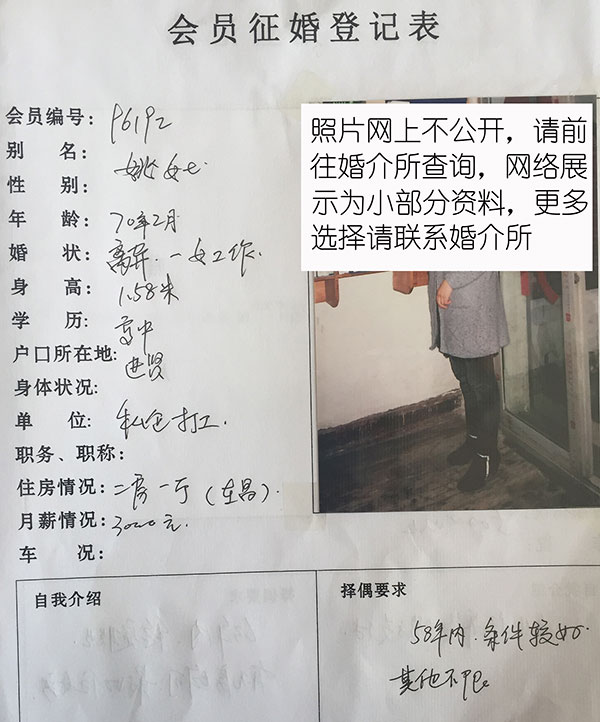 会员征婚登记表
会员编号: P6192
别 名: 姚女士
性 别:
年 龄: 70年2月
婚 状: 离异.一女工作.
身 高: 1.58米
学 历: 高中
户口所在地: 进贤
身体状况:
单 位: 私企打工.
职务、职称:
住房情况: 二房一厅(在昌).
月薪情况: 3000元.
车 况:
照片网上不公开，请前
往婚介所查询，网络展
示为小部分资料，更多
选择请联系婚介所
自我介绍
择偶要求
58年内.条件较好.
其他不限.